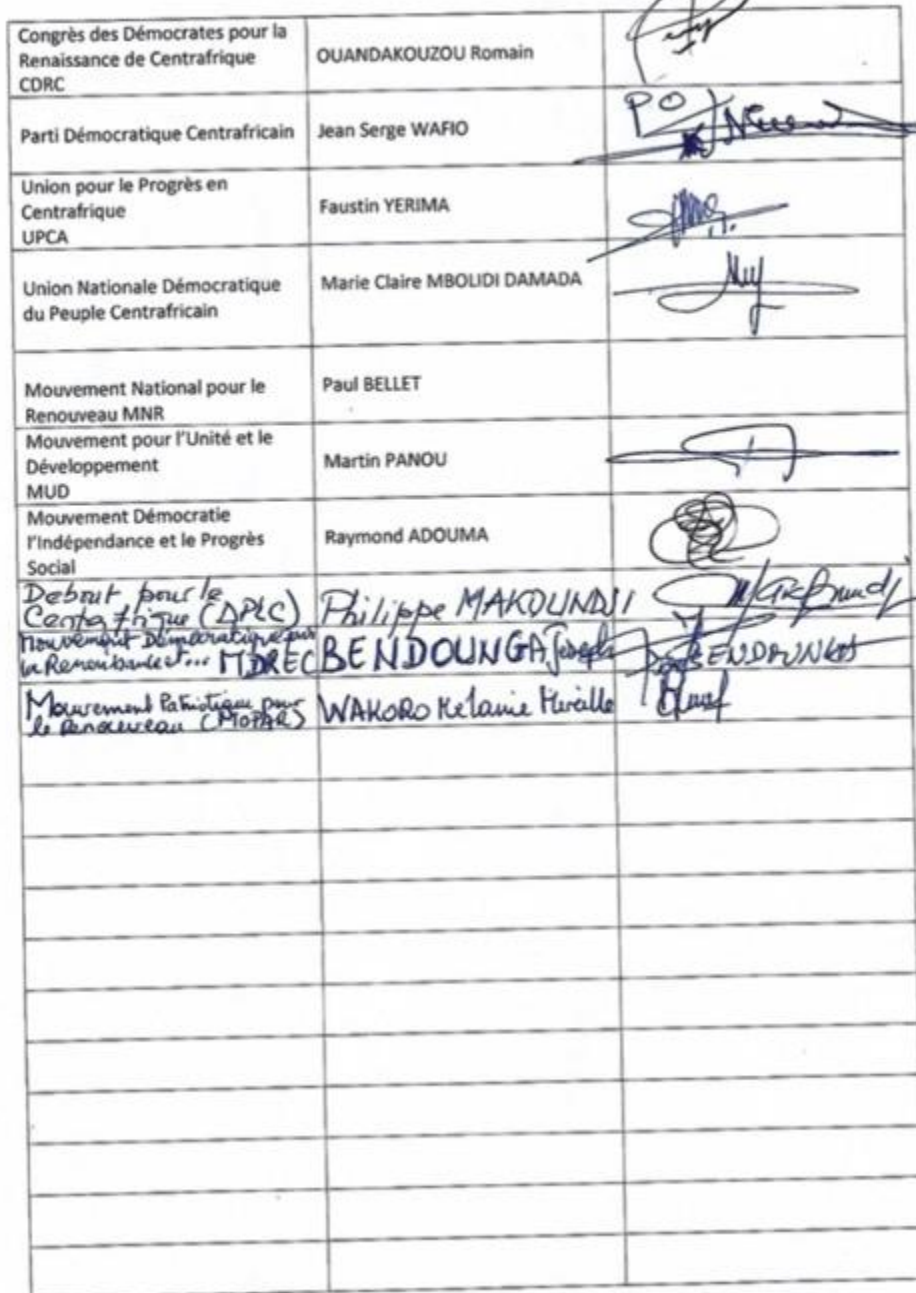 Congrès des Démocrates pour la
Renaissance de Centrafrique
CDRC
OUANDAKOUZOU Romain
Parti Démocratique Centrafricain
Jean Serge WAFIO
PO
Union pour le Progrès en
Centrafrique
UPCA
Faustin YERIMA
Union Nationale Démocratique
du Peuple Centrafricain
Marie Claire MBOLIDI DAMADA
Mouvement National pour le
Renouveau MNR
Paul BELLET
Mouvement pour l'Unité et le
Développement
MUD
Martin PANOU
Mouvement Démocratie
l'Indépendance et le Progrès
Social
Raymond ADOUMA
Debout pour le
Centrafrique (DPLC)
Philippe MAKOUNDJI
Mouvement Démocratique pour
la Renaissance et... MDREC
BENDOUNGA Joseph
Mouvement Patriotique pour
le Renouveau (MOPAR)
WAKORO Melanie Mireille